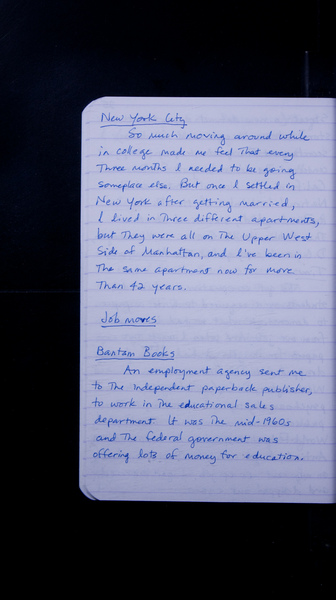 New York City
So much moving around while
in college made me feel that every
three months I needed to be going
someplace else. But once I settled in
New York after getting married,
I lived in three different apartments,
but they were all on the Upper West
Side of Manhattan, and I've been in
the same apartment now for more
than 42 years.
Job moves
Bantam Books
An employment agency sent me
to the independent paperback publisher,
to work in the educational sales
department. It was the mid-1960s
and the federal government was
offering lots of money for education.